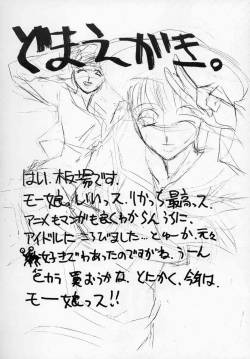 どまえがき。
はい、板場です。
モー娘。いいっス。りかっち最高っス。
アニメもマンガも良くわからんうちに、
アイドルにころびました…とゅーか、元々
好きでわあったのですがね、うーん
ピカラ買おうかな、とにかく、今年は、
モー娘っス!!